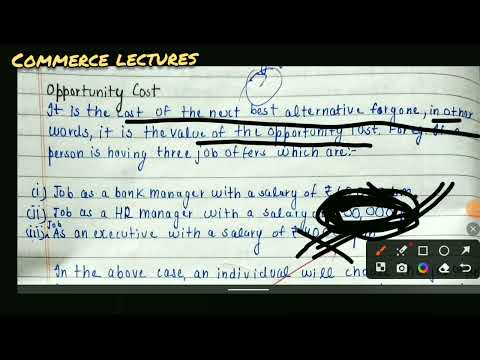 COMMERCE LECTURES
Opportunity Cost
It is the cost of the next best alternative forgone, in other
words, it is the value of the opportunity lost. For eg. If a
person is having three job offers which are:-
(i) Job as a bank manager with a salary of ₹
(ii) Job as a HR manager with a salary of 00,000
(iii) Job As an executive with a salary of ₹
In the above case, an individual will